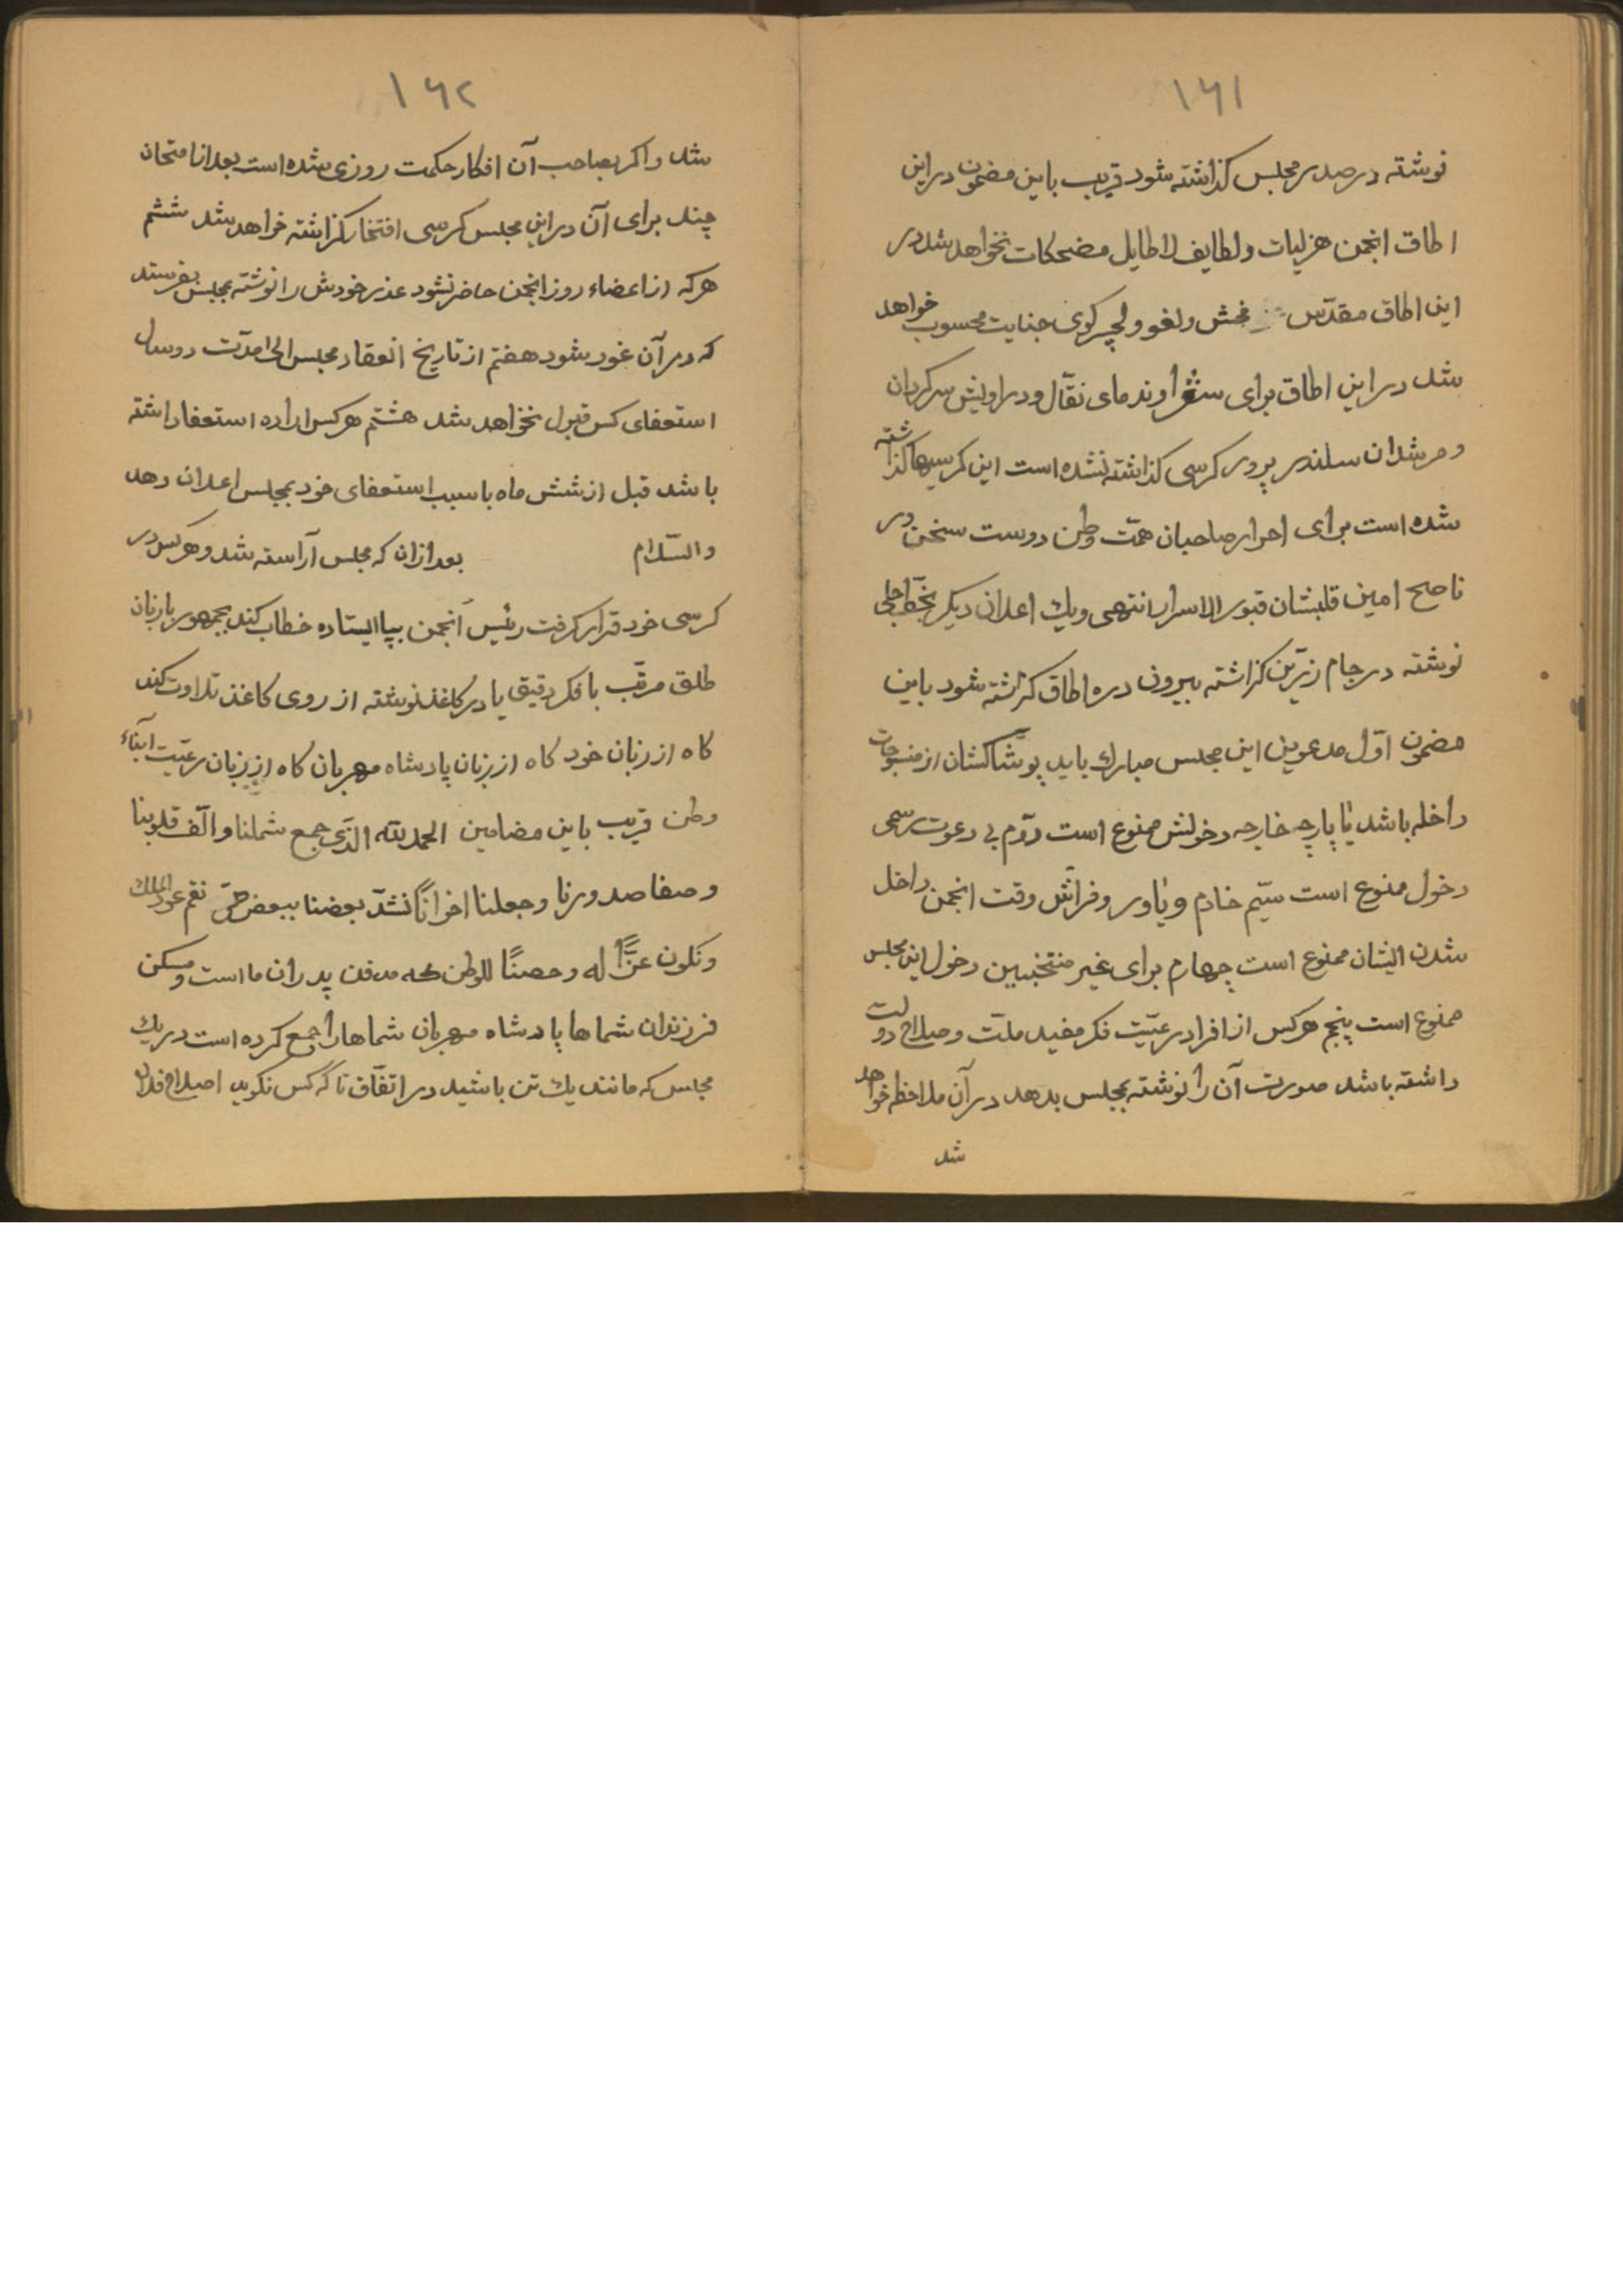 ۱۶۱
نوشته در صدر مجلس کذاشته شود قریب باین مضمون در این
اطاق انجمن هزلیات و لطایف لاطایل مضحکات نخواهد شد در
این اطاق مقدّس فحش ولغو و لچر کوی جنایت محسوب خواهد
شد در این اطاق برای شعرا وندمای نقّال ودراویش سرکردان
ومرشدان سلندر پرور کرسی کذاشته نشده است این کرسیها کذاشته
شده است برای احرار صاحبان همّت وطن دوست سخن در
ناصح امین قلبشان قبور الاسرار انتهی ویك اعلان دیکر بخطّ جلی
نوشته در جام زرّین کزاشته بیرون دره اطاق کزاشته شود باین
مضمون اوّل مدعوین این مجلس مبارك باید پوشاکشان از منسوجات
داخله باشد با پارچه خارجه دخولش ممنوع است دوّم بی دعوت رسمی
دخول ممنوع است سیّم خادم ویاور وفرّاش وقت انجمن داخل
شدن ایشان ممنوع است چهارم برای غیر منتخبین دخول این مجلس
ممنوع است پنجم هرکس از افراد رعیّت فکر مفید ملّت وصلاح دولت
داشته باشد صورت آن را نوشته بمجلس بدهد در آن ملاحظه خواهد
شد
۱۶۲
شد واکر بصاحب آن افکار حکمت روزی شده است بعد از امتحان
چند برای آن در این مجلس کرسی افتخار کزاشته خواهد شد ششم
هرکه از اعضاء روز انجمن حاضر نشود عذر خودش را نوشته بمجلس بفرستد
که در آن غور شود هفتم از تاریخ انعقاد مجلس الی مدّت دو سال
استعفای کس قبول نخواهد شد هشتم هرکس اراده استعفا داشته
باشد قبل از شش ماه با سبب استعفای خود بمجلس اعلان دهد
والسّلام بعد ازان که مجلس آراسته شد وهرکس در
کرسی خود قرار کرفت رئیس انجمن بپا ایستاده خطاب کند بجمهور با زبان
طلق مرتّب با فکر دقیق یا در کاغذ نوشته از روی کاغذ تلاوت کند
کاه از زبان خود کاه از زبان پادشاه مهربان کاه از زبان رعیّت ابناء
وطن قریب باین مضامین الحمد لله الذّی جمع شملنا والّف قلوبنا
وصفا صدورنا وجعلنا اخوانًا نشدّ بعضنا ببعض حتّی نقم عود الملك
ونکون عزًّا له وحصنًا للوطن که مدفن پدران ما است ومسکن
فرزندان شماها پادشاه مهربان شماها را جمع کرده است در یك
مجلس که مانند یك تن باشید در اتفّاق تا که کس نکوید اصلاح فلان